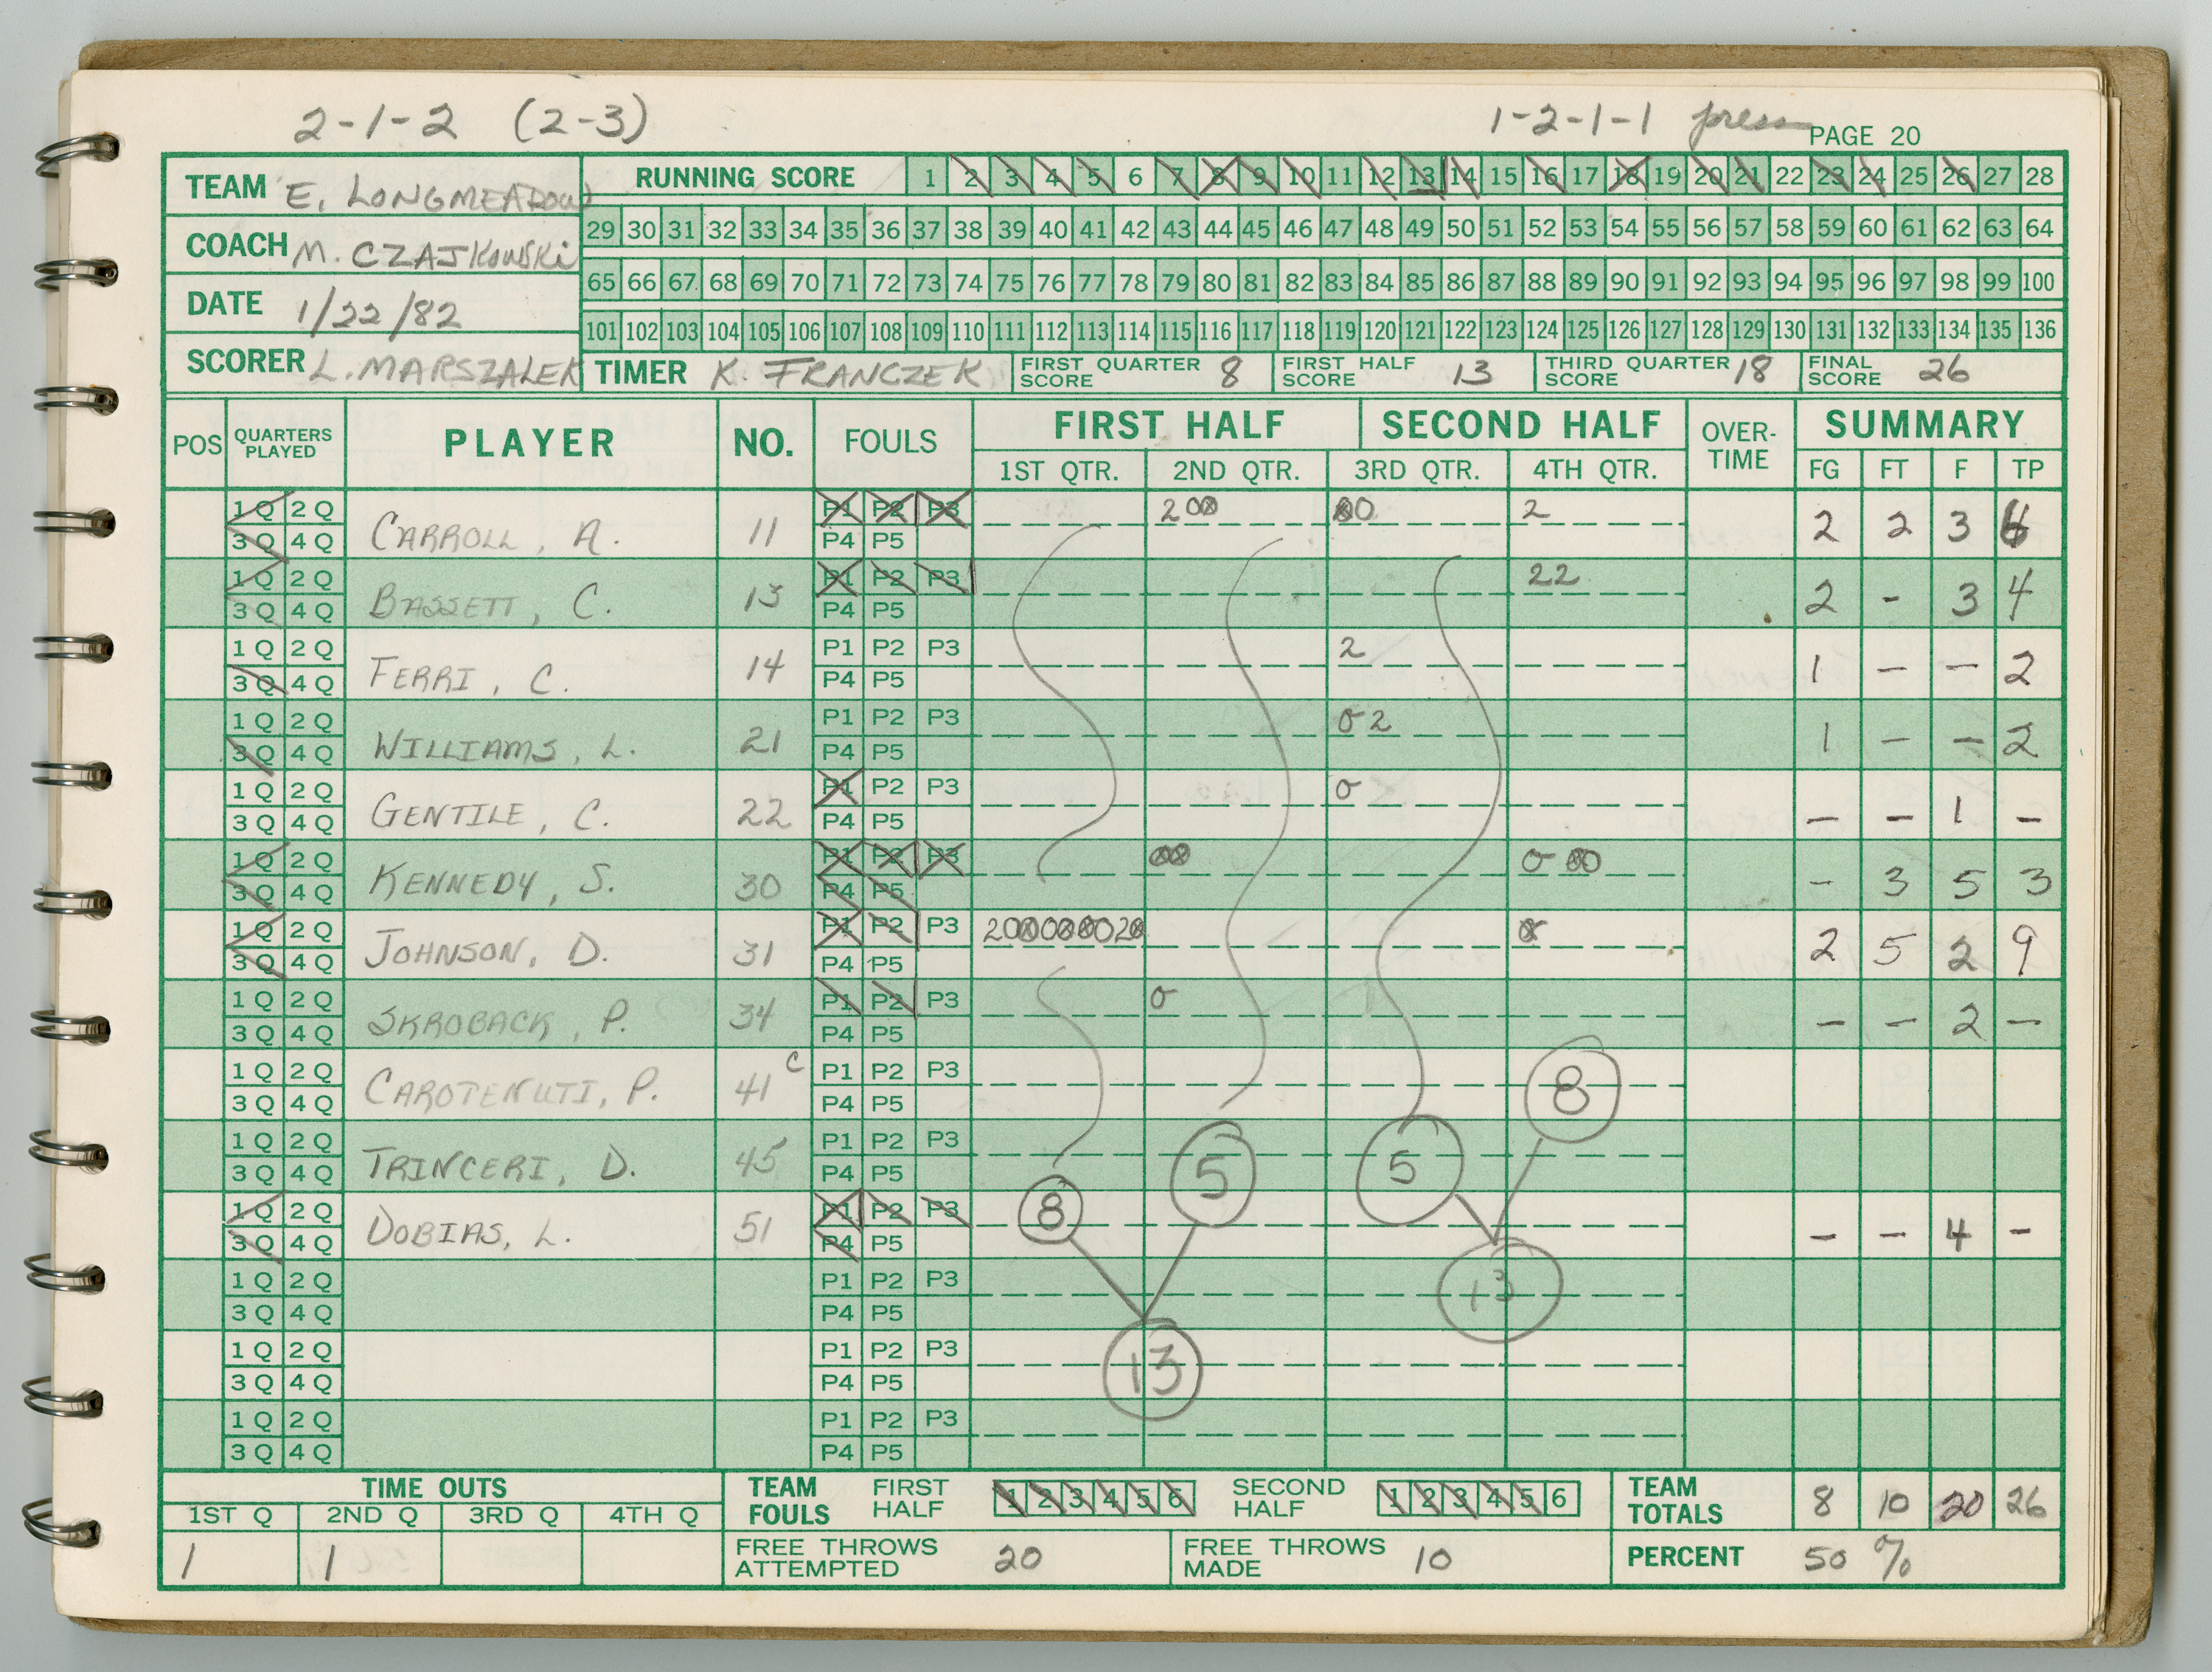 2-1-2 (2-3) 1-2-1-1 press PAGE 20
TEAM E. LONGMEADOW
COACH M. CZAJKOWSKI
DATE 1/22/82
SCORER L. MARSZALEK
RUNNING SCORE 1 2 3 4 5 6 7 8 9 10 11 12 13 14 15 16 17 18 19 20 21 22 23 24 25 26 27 28
29 30 31 32 33 34 35 36 37 38 39 40 41 42 43 44 45 46 47 48 49 50 51 52 53 54 55 56 57 58 59 60 61 62 63 64
65 66 67 68 69 70 71 72 73 74 75 76 77 78 79 80 81 82 83 84 85 86 87 88 89 90 91 92 93 94 95 96 97 98 99 100
101 102 103 104 105 106 107 108 109 110 111 112 113 114 115 116 117 118 119 120 121 122 123 124 125 126 127 128 129 130 131 132 133 134 135 136
TIMER K. FRANCZEK FIRST QUARTER SCORE 8 FIRST HALF SCORE 13 THIRD QUARTER SCORE 18 FINAL SCORE 26
POS QUARTERS PLAYED PLAYER NO. FOULS FIRST HALF SECOND HALF OVER-TIME SUMMARY
1ST QTR. 2ND QTR. 3RD QTR. 4TH QTR. FG FT F TP
1Q 2Q P1 P2 P3 2 0 0 0 0 2
3Q 4Q CARROLL, A. 11 P4 P5 2 2 3 6
1Q 2Q P1 P2 P3 22
3Q 4Q BASSETT, C. 13 P4 P5 2 - 3 4
1Q 2Q P1 P2 P3 2
3Q 4Q FERRI, C. 14 P4 P5 1 - - 2
1Q 2Q P1 P2 P3 0 2
3Q 4Q WILLIAMS, L. 21 P4 P5 1 - - 2
1Q 2Q P1 P2 P3 0
3Q 4Q GENTILE, C. 22 P4 P5 - - 1 -
1Q 2Q P1 P2 P3 00 0 00
3Q 4Q KENNEDY, S. 30 P4 P5 - 3 5 3
1Q 2Q P1 P2 P3 20000000020 0
3Q 4Q JOHNSON, D. 31 P4 P5 2 5 2 9
1Q 2Q P1 P2 P3 0
3Q 4Q SKROBACK, P. 34 P4 P5 - - 2 -
1Q 2Q C P1 P2 P3 8
3Q 4Q CAROTENUTI, P. 41 P4 P5
1Q 2Q P1 P2 P3
3Q 4Q TRINCERI, D. 45 P4 P5 5 5
1Q 2Q P1 P2 P3 8
3Q 4Q DOBIAS, L. 51 P4 P5 - - 4 -
1Q 2Q P1 P2 P3 13
3Q 4Q P4 P5
1Q 2Q P1 P2 P3 13
3Q 4Q P4 P5
1Q 2Q P1 P2 P3
3Q 4Q P4 P5
TIME OUTS
1ST Q 2ND Q 3RD Q 4TH Q
1 1
TEAM FOULS FIRST HALF 1 2 3 4 5 6 SECOND HALF 1 2 3 4 5 6
FREE THROWS ATTEMPTED 20 FREE THROWS MADE 10
TEAM TOTALS 8 10 20 26
PERCENT 50 %